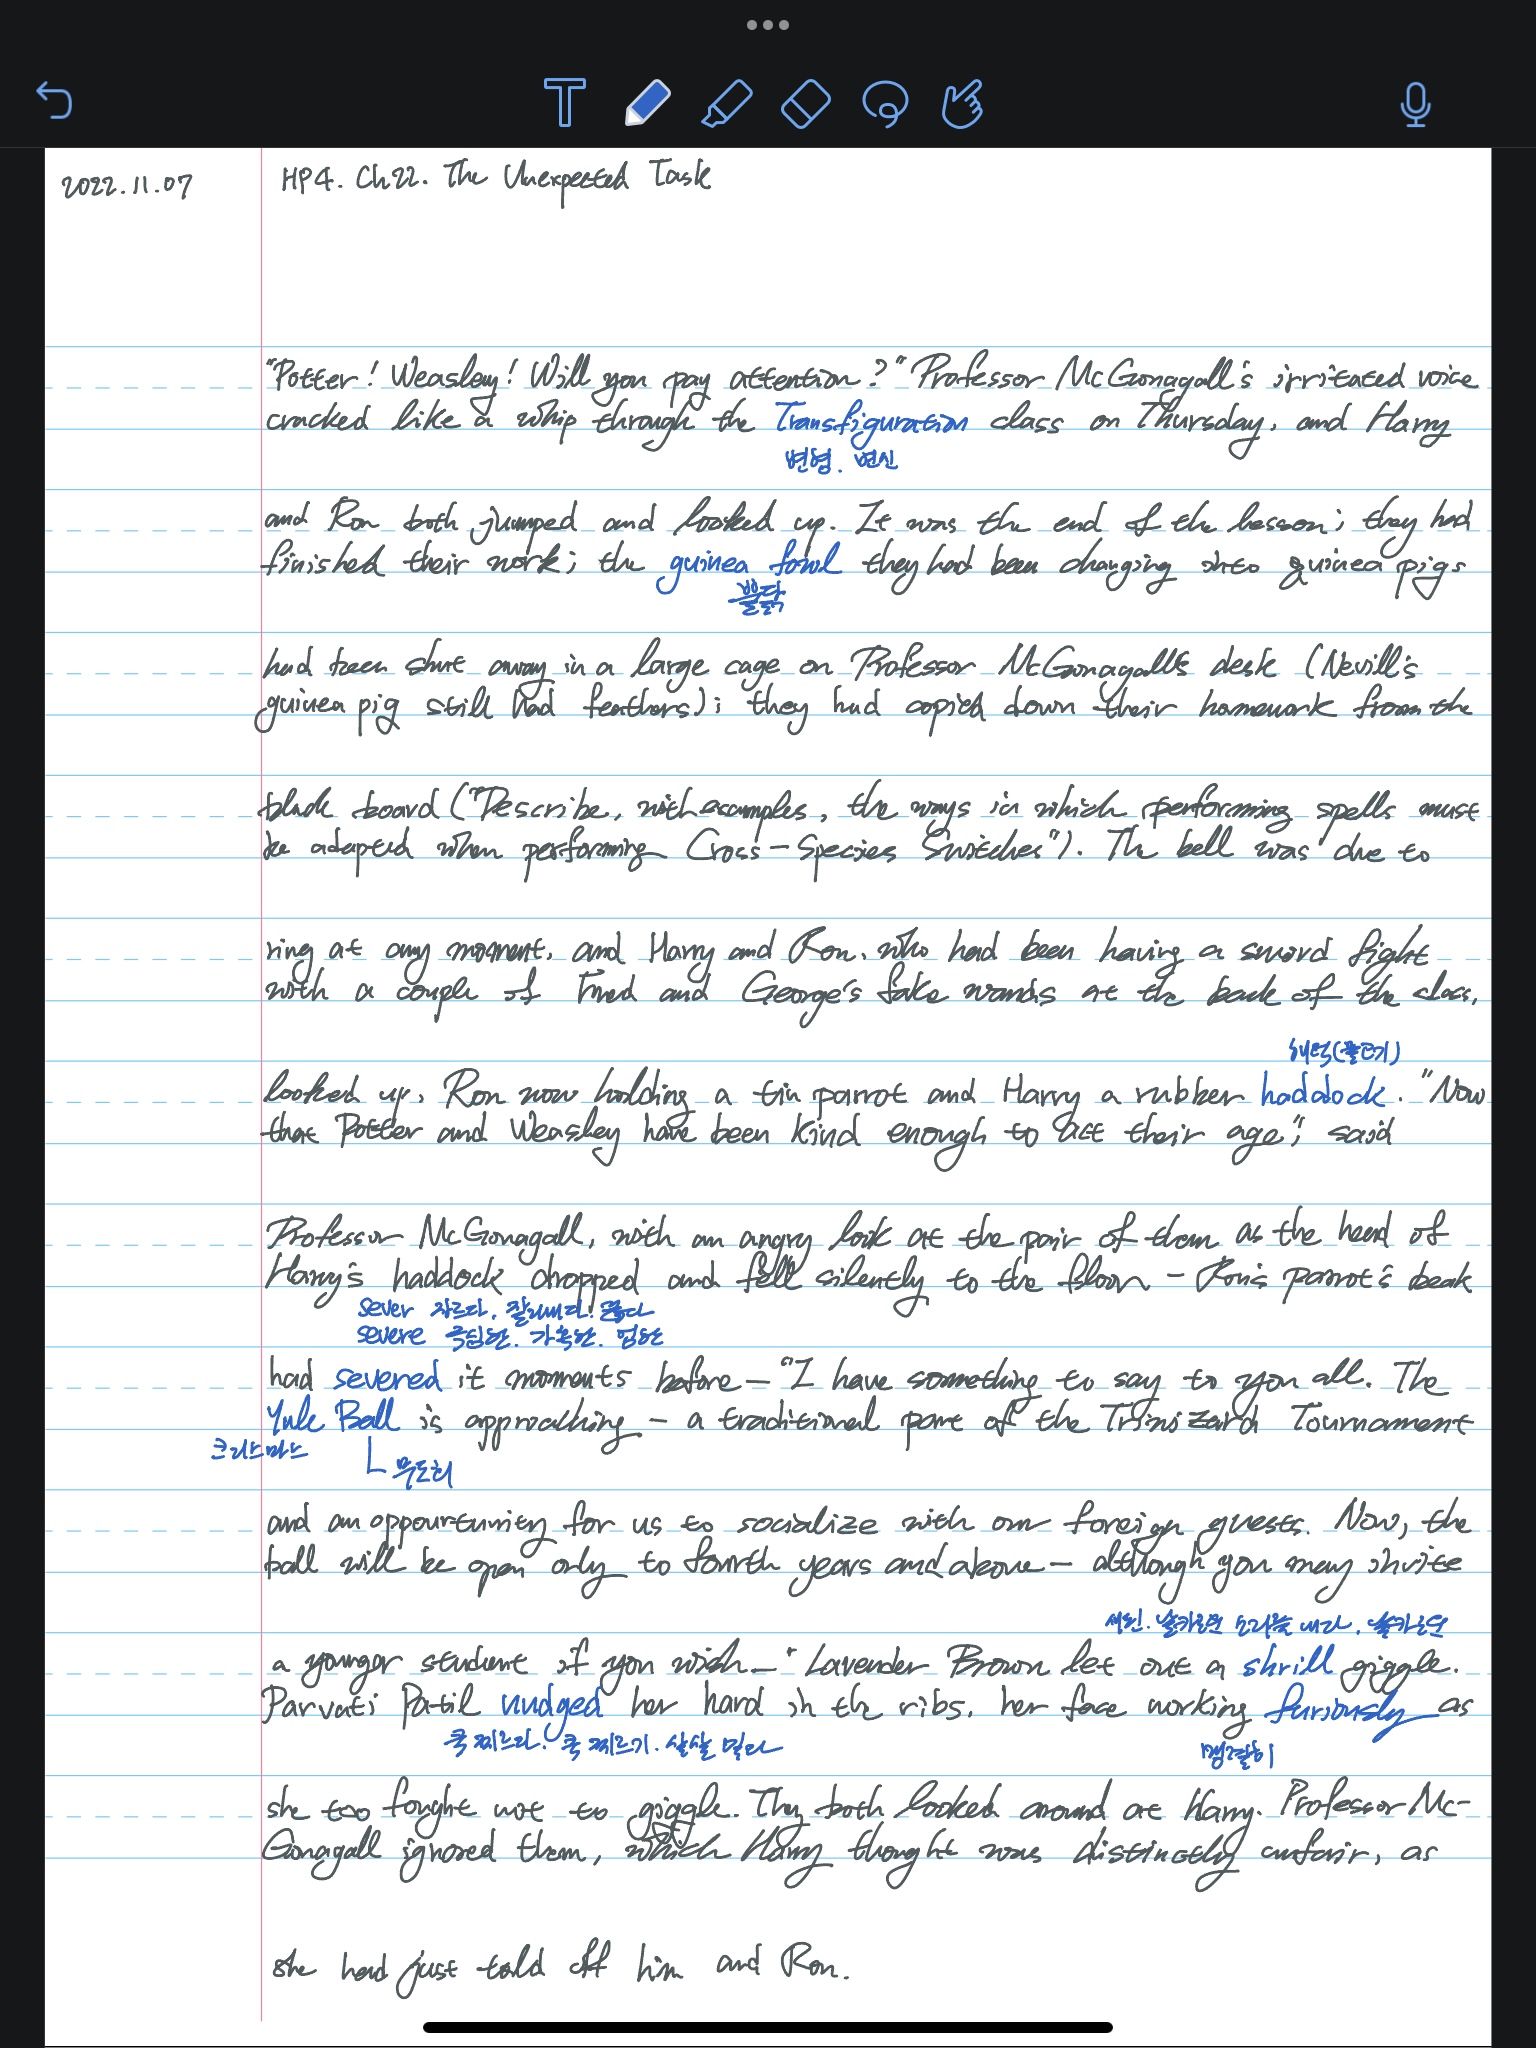 2022.11.07
HP4. Ch22. The Unexpected Task
"Potter! Weasley! Will you pay attention?" Professor McGonagall's irritated voice
cracked like a whip through the Transfiguration class on Thursday, and Harry
변형. 변신
and Ron both jumped and looked up. It was the end of the lesson; they had
finished their work; the guinea fowl they had been changing into guinea pigs
뿔닭
had been shut away in a large cage on Professor McGonagall's desk (Nevill's
guinea pig still had feathers); they had copied down their homework from the
black board ("Describe, with examples, the ways in which performing spells must
be adapted when performing Cross-Species Switches"). The bell was due to
ring at any moment, and Harry and Ron, who had been having a sword fight
with a couple of Fred and George's fake wands at the back of the class,
해덕(물고기)
looked up, Ron now holding a tin parrot and Harry a rubber haddock. "Now
that Potter and Weasley have been kind enough to act their age," said
Professor McGonagall, with an angry look at the pair of them as the head of
Harry's haddock dropped and fell silently to the floor - Ron's parrot's beak
sever 자르다. 잘라내다. 끊다
severe 극심한. 가혹한. 엄한
had severed it moments before - "I have something to say to you all. The
Yule Ball is approaching - a traditional part of the Triwizard Tournament
크리스마스
무도회
and an oppourtunity for us to socialize with our foreign guests. Now, the
ball will be open only to fourth years and above - although you may invite
새된. 날카로운 소리를 내다. 날카로운
a younger student if you wish - " Lavender Brown let out a shrill giggle.
Parvati Patil nudged her hard in the ribs, her face working furiously as
쿡 찌르다. 쿡 찌르기. 살살 밀다
맹렬히
she too fought not to giggle. They both looked around at Harry. Professor Mc-
Gonagall ignored them, which Harry thought was distinctly unfair, as
she had just told off him and Ron.